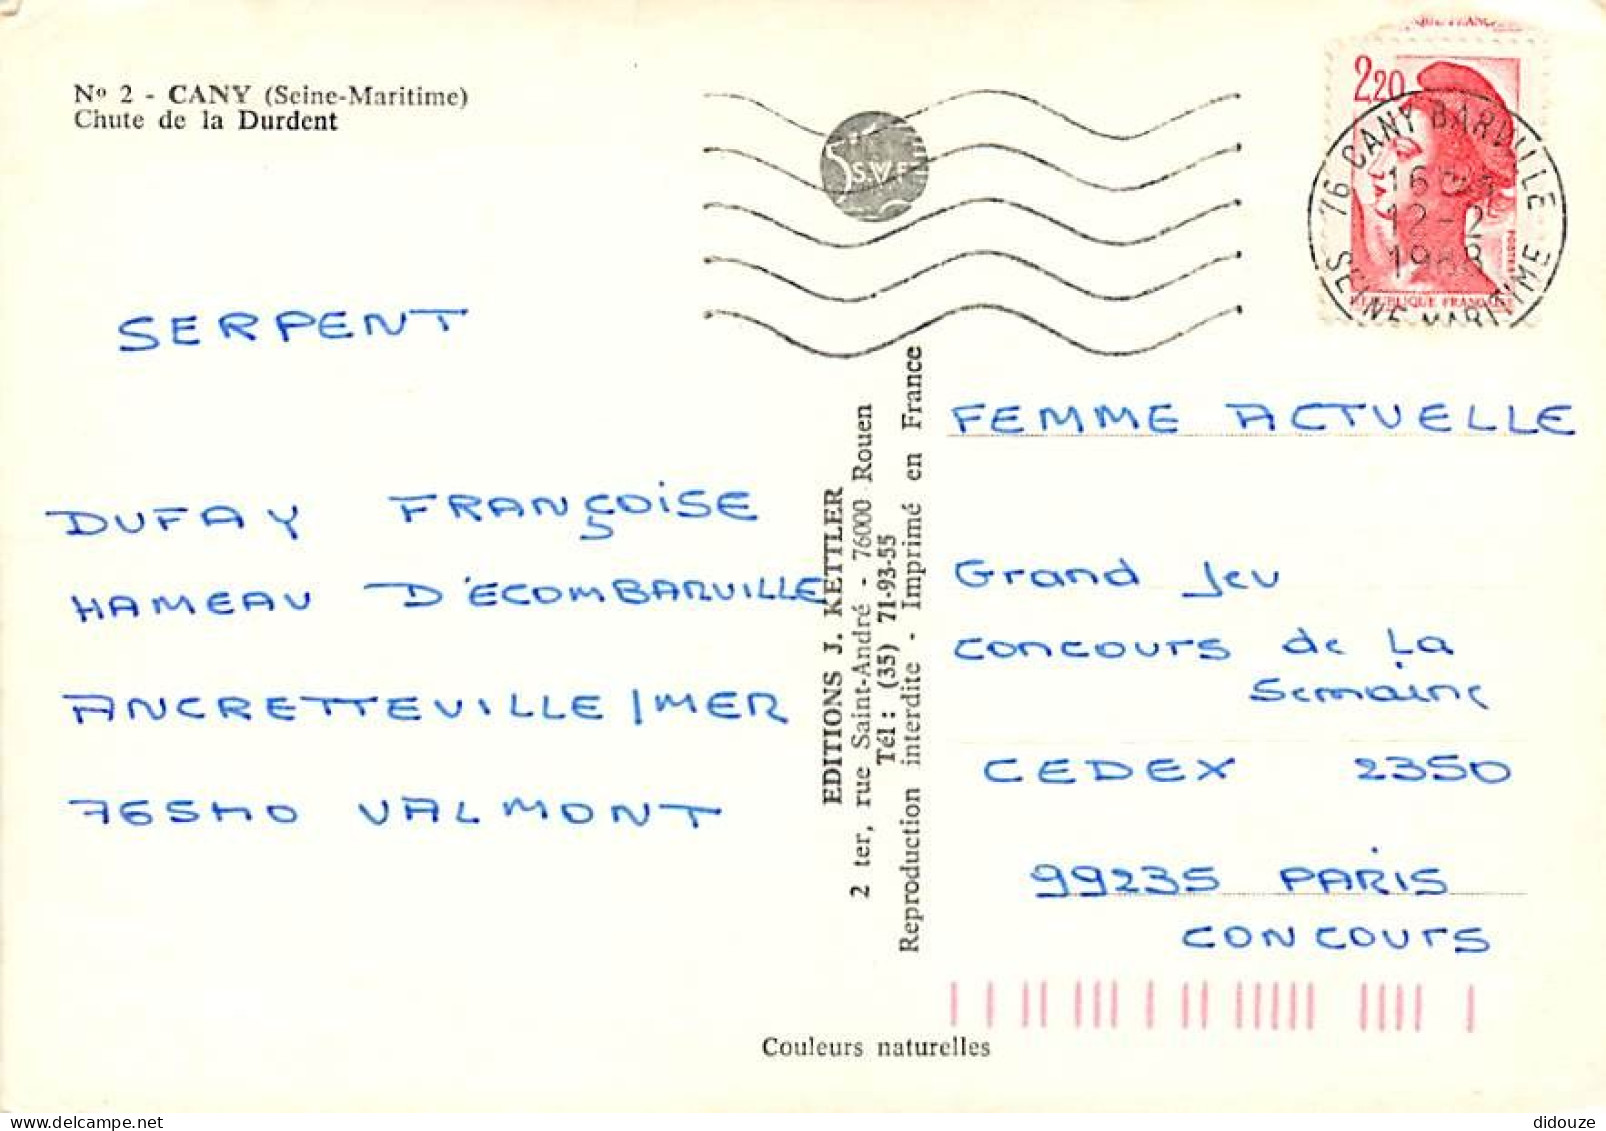 Nº 2 - CANY (Seine-Maritime)
Chute de la Durdent
5
S.V.F
QUE FRANÇ
2,20
76 CANY BARVILLE
16
12-2
1988
SEINE MARITIME
POSTES
REPUBLIQUE FRANÇAISE
SERPENT
DUFAY FRANÇOISE
HAMEAU D'ECOMBARVILLE
ANCRETTEVILLE/MER
76540 VALMONT
EDITIONS J. KETTLER
2 ter, rue Saint-André - 76000 Rouen
Tél : (35) 71-93-55
Reproduction interdite - Imprimé en France
FEMME ACTUELLE
Grand Jeu
concours de La
Semaine
CEDEX 2350
99235 PARIS
CONCOURS
Couleurs naturelles
didouze